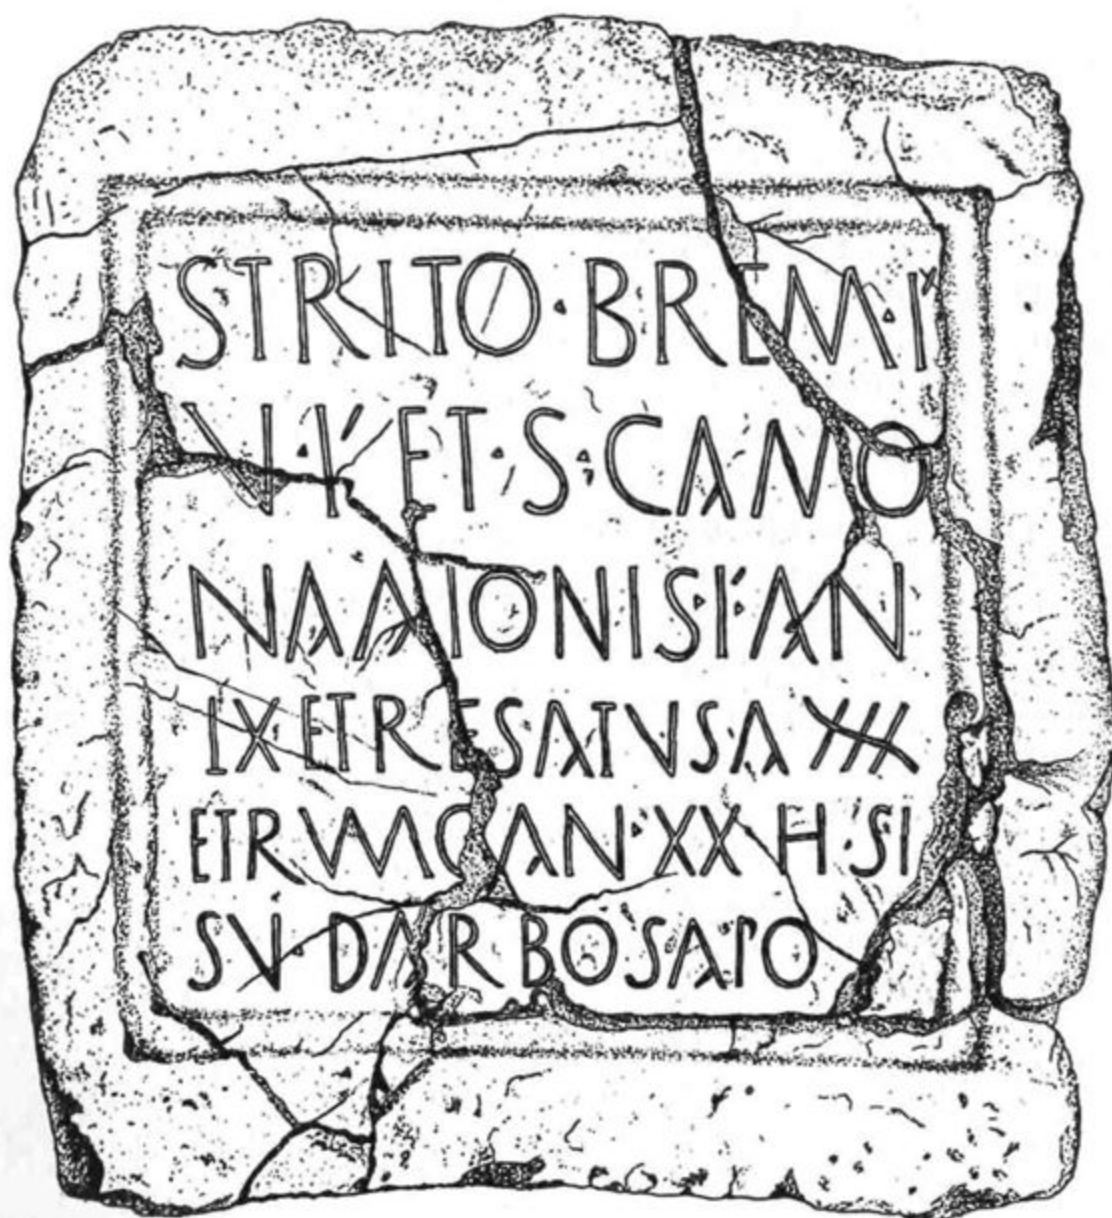 STRITO · BREM · I
VI · I' ET · S · CANO
NAAIONIS · I · AN
IX ET RESATVS A XXX
ET RVMO AN · XX H · SI
SV · DARBOSAPO